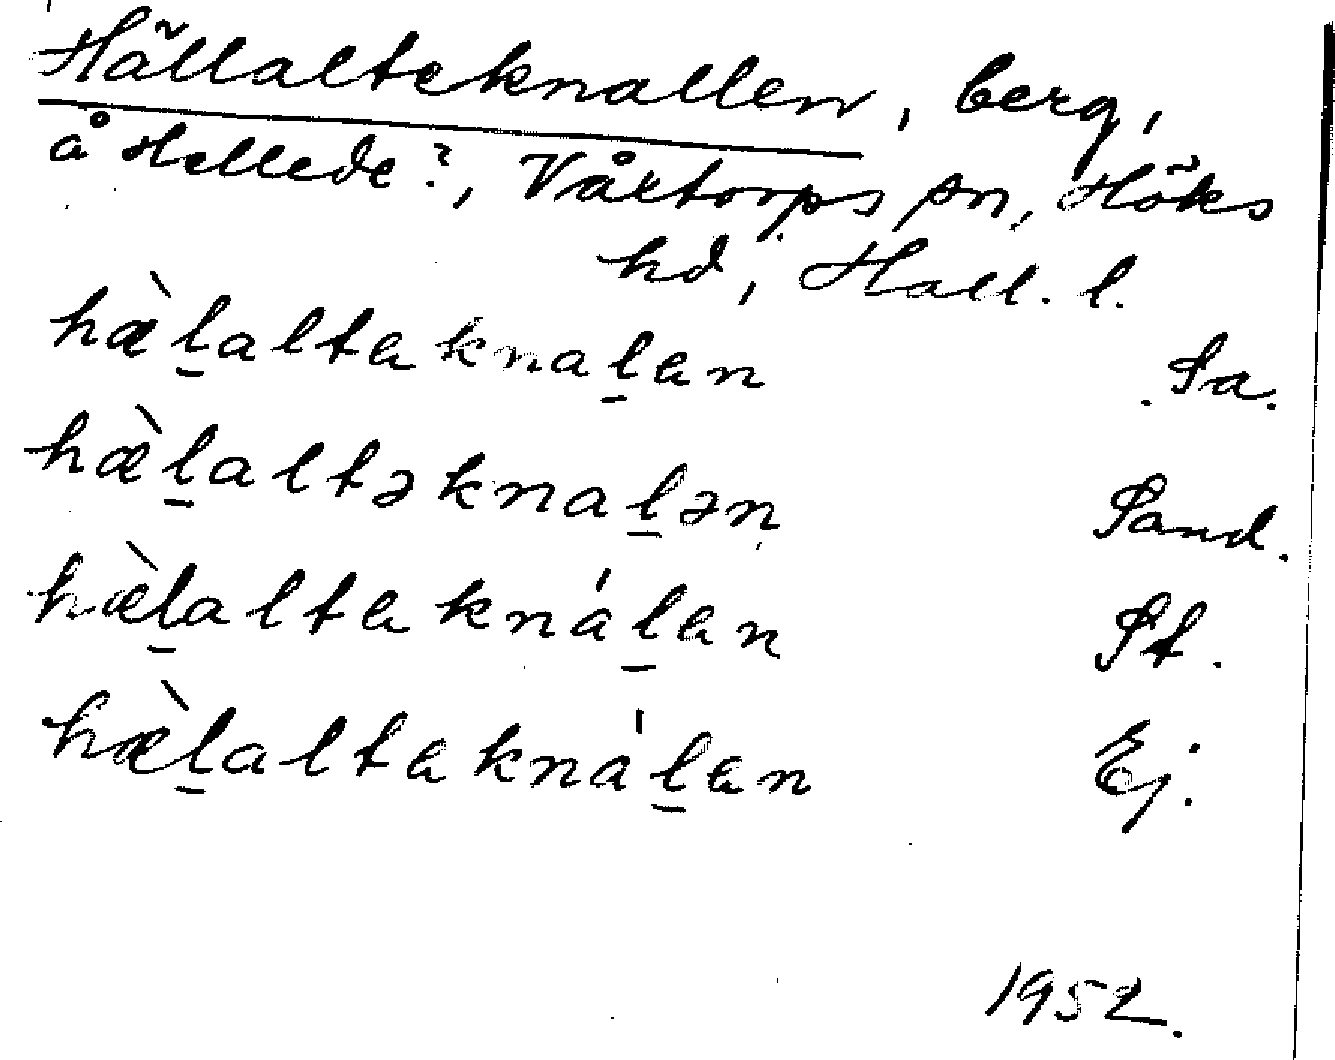 Hällalteknallen, berg,
å Hellede?, Våxtorps sn, Höks
hd, Hall. l.
hæ̀l̲altaknal̲an Sa.
hæ̀l̲altəknal̲ən Sand.
hæ̀l̲altaknál̲an St.
hæ̀l̲altaknál̲an Ej.
1952.